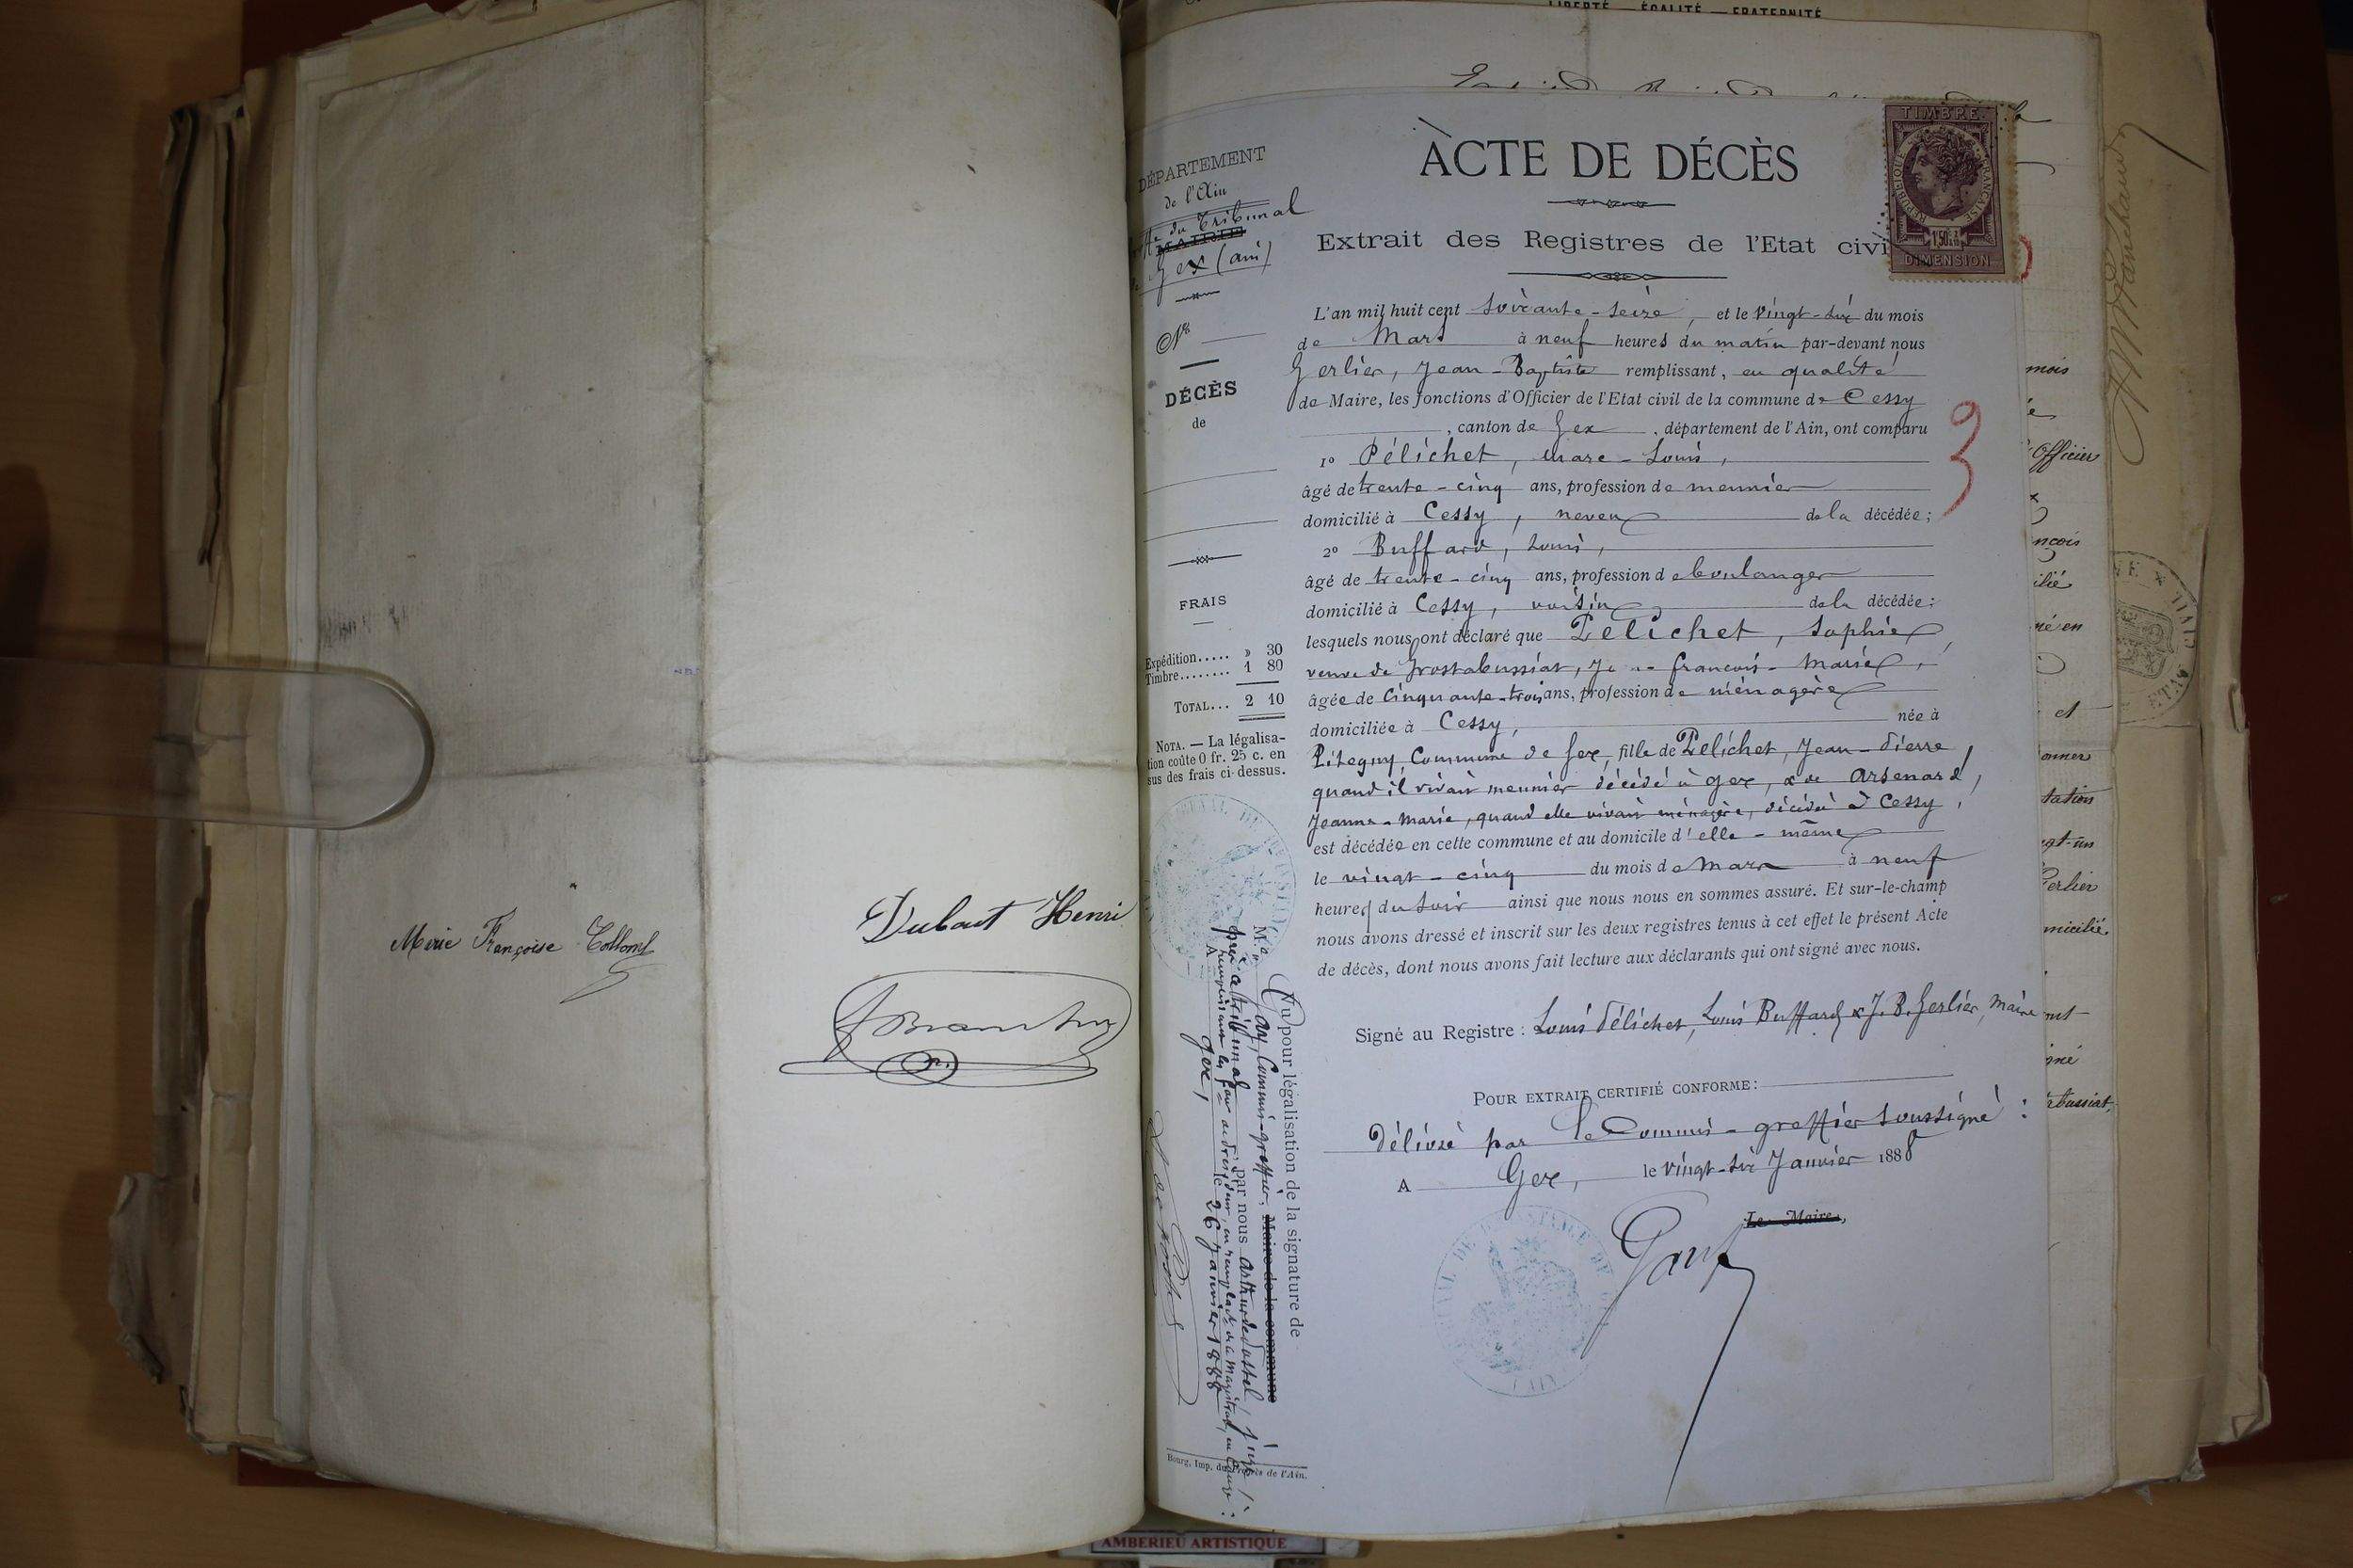 LIBERTÉ — ÉGALITÉ — FRATERNITÉ
Marie Françoise Collomb
Dubout Henri
DÉPARTEMENT
de l'Ain
du Tribunal
MAIRIE
Gex (ain)
N°
DÉCÈS
de
FRAIS
Expédition..... » 30
Timbre........ 1 80
TOTAL... 2 10
NOTA. — La légalisa-
tion coûte 0 fr. 25 c. en
sus des frais ci-dessus.
Vu pour légalisation de la signature de
M. Gay, Commis-greffier, Maire de la commune
par nous Arthur de Vastel, juge
A Gex, le 26 Janvier 1888
Bourg, Imp. du Progrès de l'Ain.
ACTE DE DÉCÈS
TIMBRE
RÉPUBLIQUE FRANÇAISE
1f50c
DIMENSION
Extrait des Registres de l'Etat civi
L'an mil huit cent soixante-seize, et le vingt-six du mois
de Mars à neuf heures du matin par-devant nous
Gerlier, Jean-Baptiste remplissant, en qualité
de Maire, les fonctions d'Officier de l'Etat civil de la commune de Cessy
, canton de Gex, département de l'Ain, ont comparu
1° Pélichet, Marc-Louis,
âgé de trente-cinq ans, profession de meunier
domicilié à Cessy, neveu de la décédée;
2° Buffard, Louis,
âgé de trente-cinq ans, profession de boulanger
domicilié à Cessy, voisin de la décédée;
lesquels nous ont déclaré que Pelichet, Sophie,
veuve de Grostabussiat, Jean-François-Marie,
âgée de cinquante-trois ans, profession de ménagère
domiciliée à Cessy, née à
Pitegny, Commune de Gex, fille de Pelichet, Jean-Pierre,
quand il vivait meunier décédé à Gex, & de Arsenard,
Jeanne-Marie, quand elle vivait ménagère, décédée à Cessy,
est décédée en cette commune et au domicile d'elle-même
le vingt-cinq du mois de Mars à neuf
heures du soir ainsi que nous nous en sommes assuré. Et sur-le-champ
nous avons dressé et inscrit sur les deux registres tenus à cet effet le présent Acte
de décès, dont nous avons fait lecture aux déclarants qui ont signé avec nous.
Signé au Registre : Louis Pélichet, Louis Buffard & J. B. Gerlier, Maire
POUR EXTRAIT CERTIFIÉ CONFORME :
Délivré par le Commis-greffier soussigné :
A Gex, le vingt-six Janvier 1888
Le Maire,
3
mois
Officier
nçois
ilié
né en
et
tation
gt-un
Gerlier
micilié
AMBERIEU ARTISTIQUE